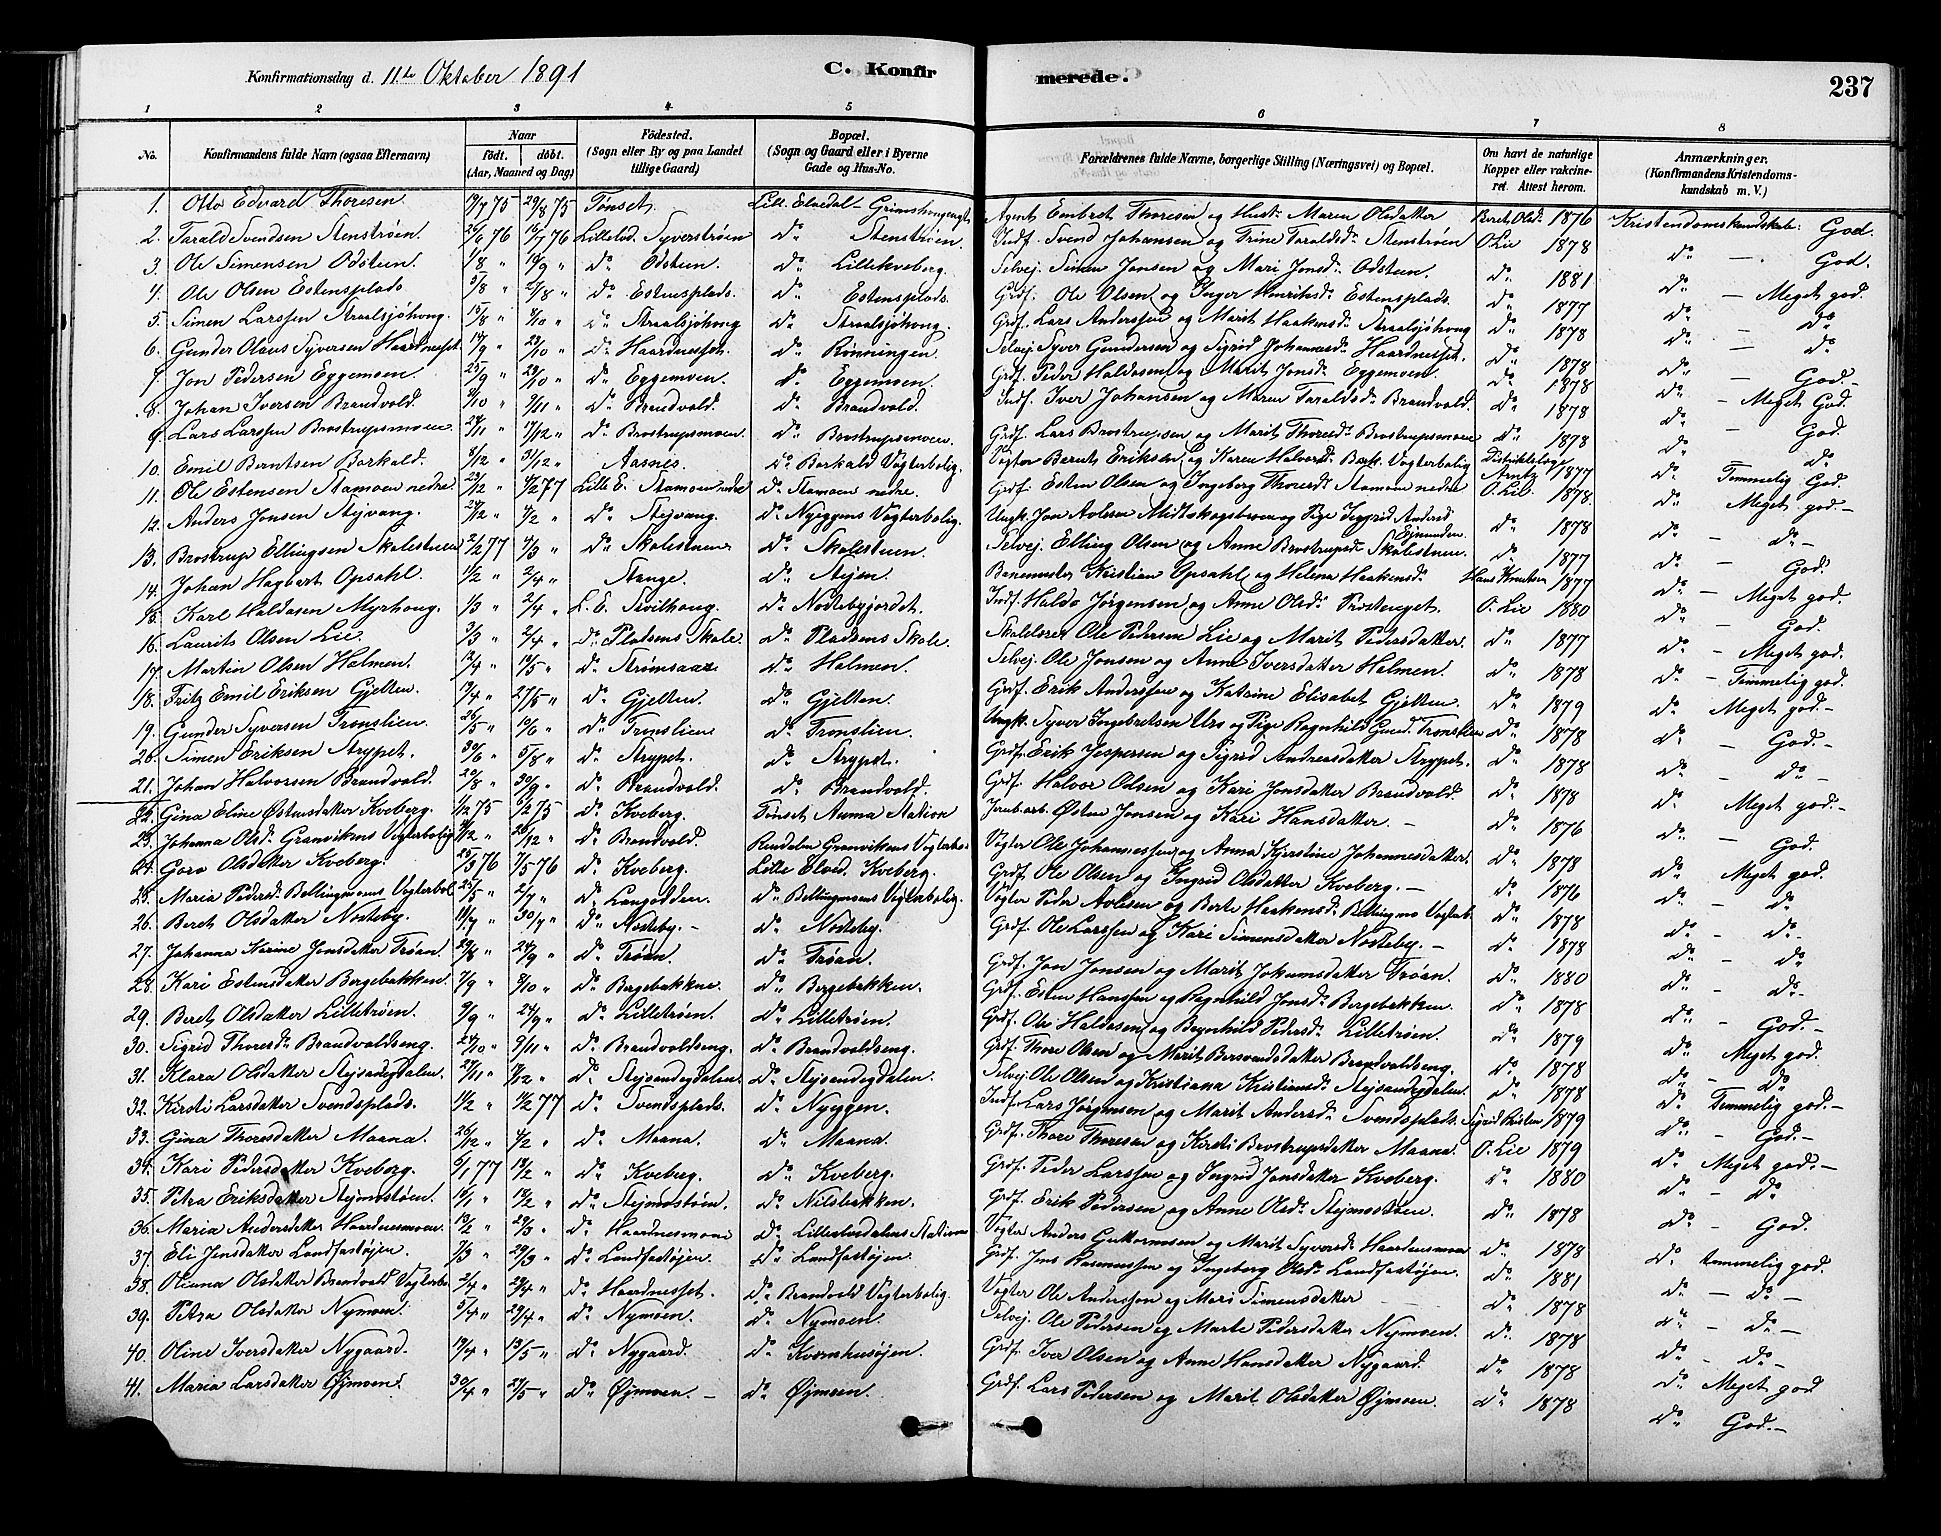 Konfirmationsdag d. 11te Oktober 1891 C. Konfirmerede. 237
1 2 3 4 5 6 7 8
No. Konfirmandens fulde Navn (ogsaa Efternavn) Naar født. døbt. (Aar, Maaned og Dag) Födested. (Sogn eller By og paa Landet tillige Gaard) Bopæl. (Sogn og Gaard eller i Byerne Gade og Hus-No. Forældrenes fulde Navne, borgerlige Stilling (Næringsvei) og Bopæl. Om havt de naturlige Kopper eller vakcineret. Attest herom. Anmærkninger. (Konfirmandens Kristendomskundskab m. V.)
1. Otto Edvard Thoresen 19/7 75 29/8 75 Tønset. Lill. Elvedal Agent Embret Thoresen og Hust. Maren Olsdatter Beret Olsd. 1876 Kristendomskundskab: God.
2. Tarald Svendsen Stenstrøen 26/6 76 16/7 76 Lilleelvd. Syverstrøen do Stenstrøen Indf. Svend Johansen og Trine Taraldsd. Stenstrøen O. Lie 1878 do — God.
3. Ole Simensen Odsteen. 1/8 " 10/9 " do Odsteen. do Lillekveberg. Selvej. Simen Jonsen og Mari Jonsd. Odsteen. do 1881 do — Meget god.
4. Ole Olsen Estensplads 5/8 " 27/8 " do Estensplads. do Estensplads. Grdf. Ole Olsen og Inger Henriksd. Estensplads. do 1877 do — do
5. Simen Larssen Straalsjøhong. 15/8 " 1/10 " do Straalsjøhong do Straalsjøhong. Grdf. Lars Anderssen og Marit Haakensd. Straalsjøhong do 1878 do — do
6. Gunder Olaus Syversen Haardnesset 14/9 " 29/10 " do Haardnesset. do Rønningen. Selvej. Syver Gundersen og Sigrid Johannesd. Haardnesset. do 1878 do — God.
7. Jon Pedersen Eggemoen. 25/9 " 29/10 " do Eggemoen. do Eggemoen. Grdf. Peder Haldosen og Marit Jonsd. Eggemoen. do 1878 do — Meget God.
8. Johan Iversen Brandvold. 9/10 " 5/11 " do Brandvold. do Brandvold. Indf. Iver Johansen og Maren Taraldsd. Brandvold. do 1878 do God.
9. Lars Larssen Brostrupsmoen 24/11 " 17/12 " do Brostrupsmoen. do Brostrupsmoen. Grdf. Lars Brostrupsen og Marit Thoresd. Brostrupsmoen do 1878 do do
10. Emil Berntsen Barkald. 8/12 " 31/12 " Aasnes. do Barkald Vogterbolig. Vogter Bernt Eriksen og Karen Halvorsd. Bark. Vogterbolig Distriktslæg Arntz 1877 do Temmelig God.
11. Ole Estensen Stamoen nedre 23/12 " 4/2 77 Lille E. Stamoen nedre do Stamoen nedre. Grdf. Esten Olsen og Ingeborg Thoresd. Stamoen nedre O. Lie 1878. do Meget god —
12. Anders Jonsen Stejvang. 24/12 " 4/2 " do Stejvang. do Nyeggens Vogterbolig. Ungk. Jon Avlesen Midtskogstuen og Pige Ingrid Andersd Egnunden do 1878 do — do —
13. Brostrup Ellingsen Skolestuen 2/2 77 4/3 " do Skolestuen do Skolestuen. Selvej. Elling Olsen og Anne Brostrupsd. Skolestuen. do 1877 do — God.
14. Johan Hagbart Opsahl. 1/2 " 2/4 " Stange. do Stejen. Banemester Kristian Opsahl og Helena Haakensd. Hans Knutsen 1877 do — Meget god.
15. Karl Haldosen Myrhong. 1/3 " 2/4 " L. E. Tvilhong. do Nostebyjordet. Indf. Haldo Jørgensen og Anne Olsd. O. Lie 1880 do — God.
16. Laurits Olsen Lie. 3/3 " 2/4 " do Pladsens Skole. do Pladsens Skole. Skolelærer Ole Pedersen Lie og Marit Pedersdatter. do 1877 do — Meget god.
17. Martin Olsen Holmen. 12/4 " 10/5 " do Strømsaar do Holmen. Selvej. Ole Jonsen og Anne Iversdatter Holmen. do 1878 do — Temmelig god.
18. Fritz Emil Eriksen Gjelten. 9/4 " 27/5 " do Gjelten. do Gjelten. Grdf. Erik Anderssen og Katrine Elisabet Gjelten. do 1879 do Meget god. —
19. Gunder Syversen Tronslien. 26/5 " 10/6 " do Tronslien do Tronslien. Ungk. Syver Ingebretsen Urs og Pige Ragnhild Gund. Tronslien do 1878 do — God. —
20. Simen Eriksen Strypet. 30/6 " 5/8 " do Strypet. do Strypet. Grdf. Erik Jespersen og Sigrid Andreasdatter Strypet. do 1878 do — do —
21. Johan Halvorsen Brandvold. 20/8 " 30/9 " do Brandvold. do Brandvold. Grdf. Halvor Olsen og Kari Jonsdatter Brandvold. do 1878 do Meget god. —
22. Gina Eline Østensdatter Kveberg. 1/12 75 5/2 75 do Kveberg. Tønset Auma Station Jernb.arb. Østen Jonsen og Kari Hansdatter. — do 1876 do — God.
23. Johanna Olsd. Granvikens Vogterbolig 26/12 " do Brandvold. Rendalen Granvikens Vogterbo. Vogter Ole Johannessen og Anna Kjerstine Johannesdatter. do 1878 do Meget god.
24. Goro Olsdatter Kveberg. 25/3 76 7/5 76 do Kveberg. Lille Elved. Kveberg. Grdf. Ole Olsen og Ingrid Olsdatter Kveberg. — do 1876 do — do
25. Maria Pedersd. Bellingmoens Vogterbol. 25/5 " 2/7 " do Langodden. do Bellingmoens Vogterbolig. Vogter Peder Avlesen og Berte Haakensd. Bellingmo Vogterb. do 1878 do — do
26. Beret Olsdatter Nosteby. 11/7 " 30/7 " do Nosteby. — do Nosteby. Grdf. Ole Larssen og Kari Simensdatter Nosteby. — do 1878 do — do
27. Johanna Karine Jonsdatter Trøan. 29/8 " 24/9 " do Trøan. do Trøan. Grdf. Jon Jonsen og Marit Johansdatter Trøan. do 1880 do — do.
28. Kari Estensdatter Bergebakken. 7/9 " 8/10 " do Bergebakken. do Bergebakken. Grdf. Esten Hanssen og Ragnhild Jonsd. Bergebakken. do 1878 do — God. —
29. Beret Olsdatter Lilletrøen. 9/9 " 24/9 " do Lilletrøen. do Lilletrøen. Grdf. Ole Haldosen og Ragnhild Pedersd. Lilletrøen. do 1879 do Meget god.
30. Sigrid Thoresd. Brandvoldseng. 24/10 " 5/11 " do Brandvoldseng. do Brandvoldseng. Grdf. Thore Olsen og Marit Bersvendsdatter Brandvoldseng. do 1878 do — do
31. Klara Olsdatter Stejsandegdalen. 24/11 " 3/12 " do Stejsandegdalen. do Stejsandegdalen. Selvej. Ole Olsen og Kristiana Kristiansd. Stejsandegdalen. do 1878 do Temmelig god. —
32. Kirsti Larsdatter Svendsplads. 11/2 " 11/2 77 do Svendsplads. do Nyeggen. Indf. Lars Jørgensen og Marit Andersd. Svendsplads. Sigrid Kristen 1879 do — God. —
33. Gina Thoresdatter Maana. 26/12 " 4/2 " do Maana. do Maana. Grdf. Thore Thoresen og Kirsti Brostrupsdatter Maana. O. Lie 1879 do Meget god. —
34. Kari Pedersdatter Kveberg. 6/1 77 18/2 " do Kveberg. do Kveberg. Grdf. Peder Larssen og Ingrid Jonsdatter Kveberg. do 1880 do — do
35. Petra Eriksdatter Stejmostøen. 19/1 " 18/2 " do Stejmostøen. do Nilsbakken. Grdf. Erik Pedersen og Anne Olsd. Stejmostøen. do 1878 do — God.
36. Maria Andersdatter Haardnesmoen. 13/2 " 29/3 " do Haardnesmoen do Lilleelvedalens Station Vogter Anders Guttormsen og Marit Syversd. Haardnesmoen do 1878 do temmelig god.
37. Eli Jensdatter Landfastøjen. 7/3 " 29/3 " do Landfastøjen. do Landfastøjen. Grdf. Jens Rasmussen og Ingeborg Olsd. Landfastøjen. do 1881 do — do —
38. Olianna Olsdatter Brandvold Vogterbo. 2/4 " 29/4 " do Haardnesset. do Brandvold Vogterbolig. Vogter Ole Anderssen og Mari Simensdatter — do 1878 do — do —
39. Petra Olsdatter Nymoen. 5/4 " 29/4 " do Nymoen. do Nymoen. Selvej. Ole Pedersen og Marte Pedersdatter Nymoen. do 1878 do — do —
40. Oline Iversdatter Nygaard. 19/4 " 13/5 " do Nygaard. do Kvernhusøjen. Grdf. Iver Olsen og Anne Hansdatter Nygaard. do 1878 do Meget god
41. Maria Larsdatter Øjmoen. 30/4 " 27/5 " do Øjmoen. — do Øjmoen. Grdf. Lars Pedersen og Marit Olsdatter Øjmoen. do 1878 do God. —